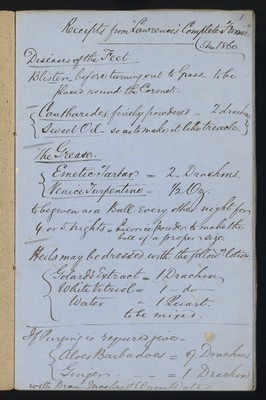 Receipts from "Lawrence's Complete Farrier
Diseases of the Feet.
Blister - before turning out to Grass. to be
placed round the Coronet.
Cantharides finely powdered - 2 drachms
Sweet Oil so as to make it like treacle.
The Grease.
Emetic Tartar = 2 - Drachms.
Venice Turpentine - ½ Oz.
to be given as a Ball every other night for
4 or 5 nights - Licorice powder to make the
ball of a proper size.
Heels may be dressed with the follow.g Lotion
Golards Extract = 1 Drachm
White Vitriol = 1 - do -
Water = 1 Quart.
to be mixed.
If Purging is required give -
Aloes Barbadoes = 9 Drachms
Ginger - - = 1 Drachm
with Bran Mashes & Warm Water